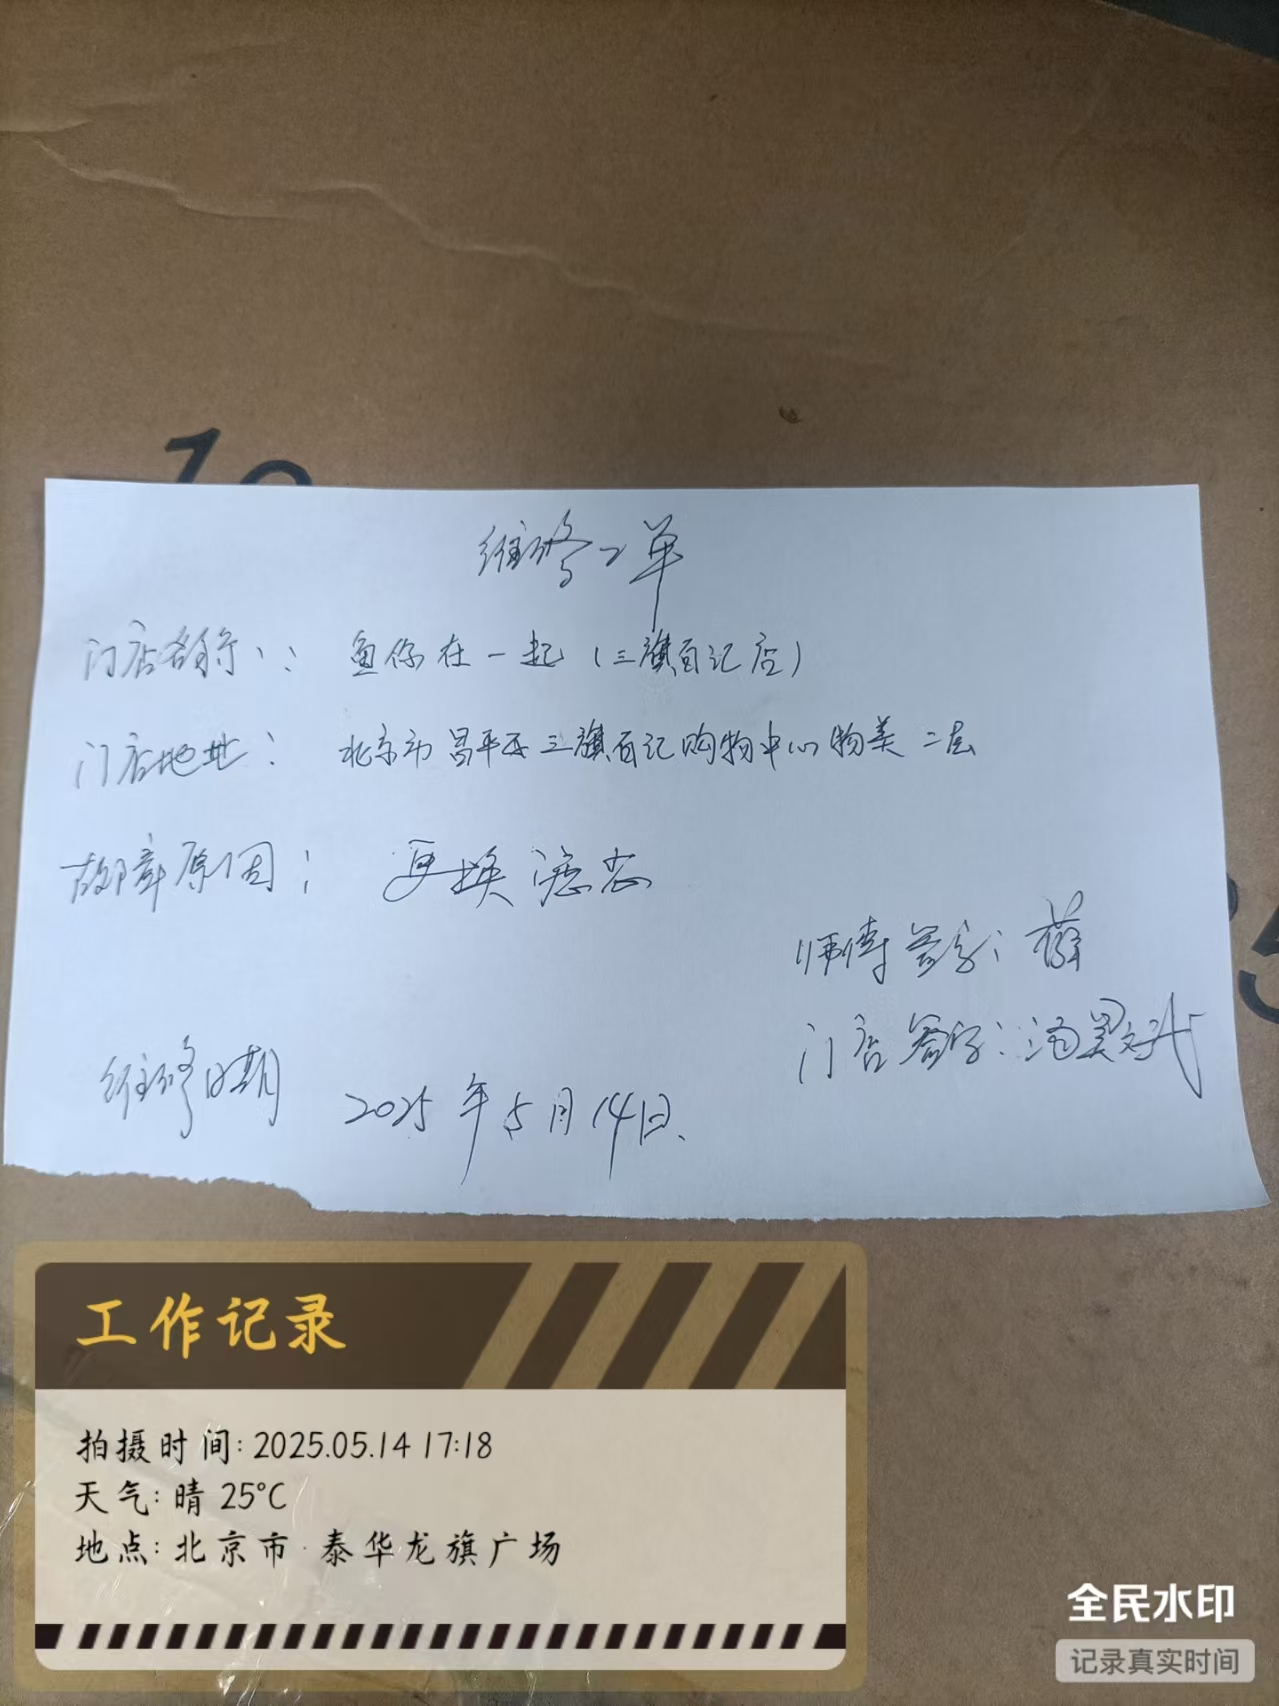 维修工单
门店名称：鱼你在一起（三旗百记店）
门店地址：北京市昌平区三旗百记购物中心物美二层
故障原因：更换滤芯
师傅签字：薛
门店签字：
维修日期 2025年5月14日
工作记录
拍摄时间: 2025.05.14 17:18
天气: 晴 25°C
地点: 北京市·泰华龙旗广场
全民水印
记录真实时间